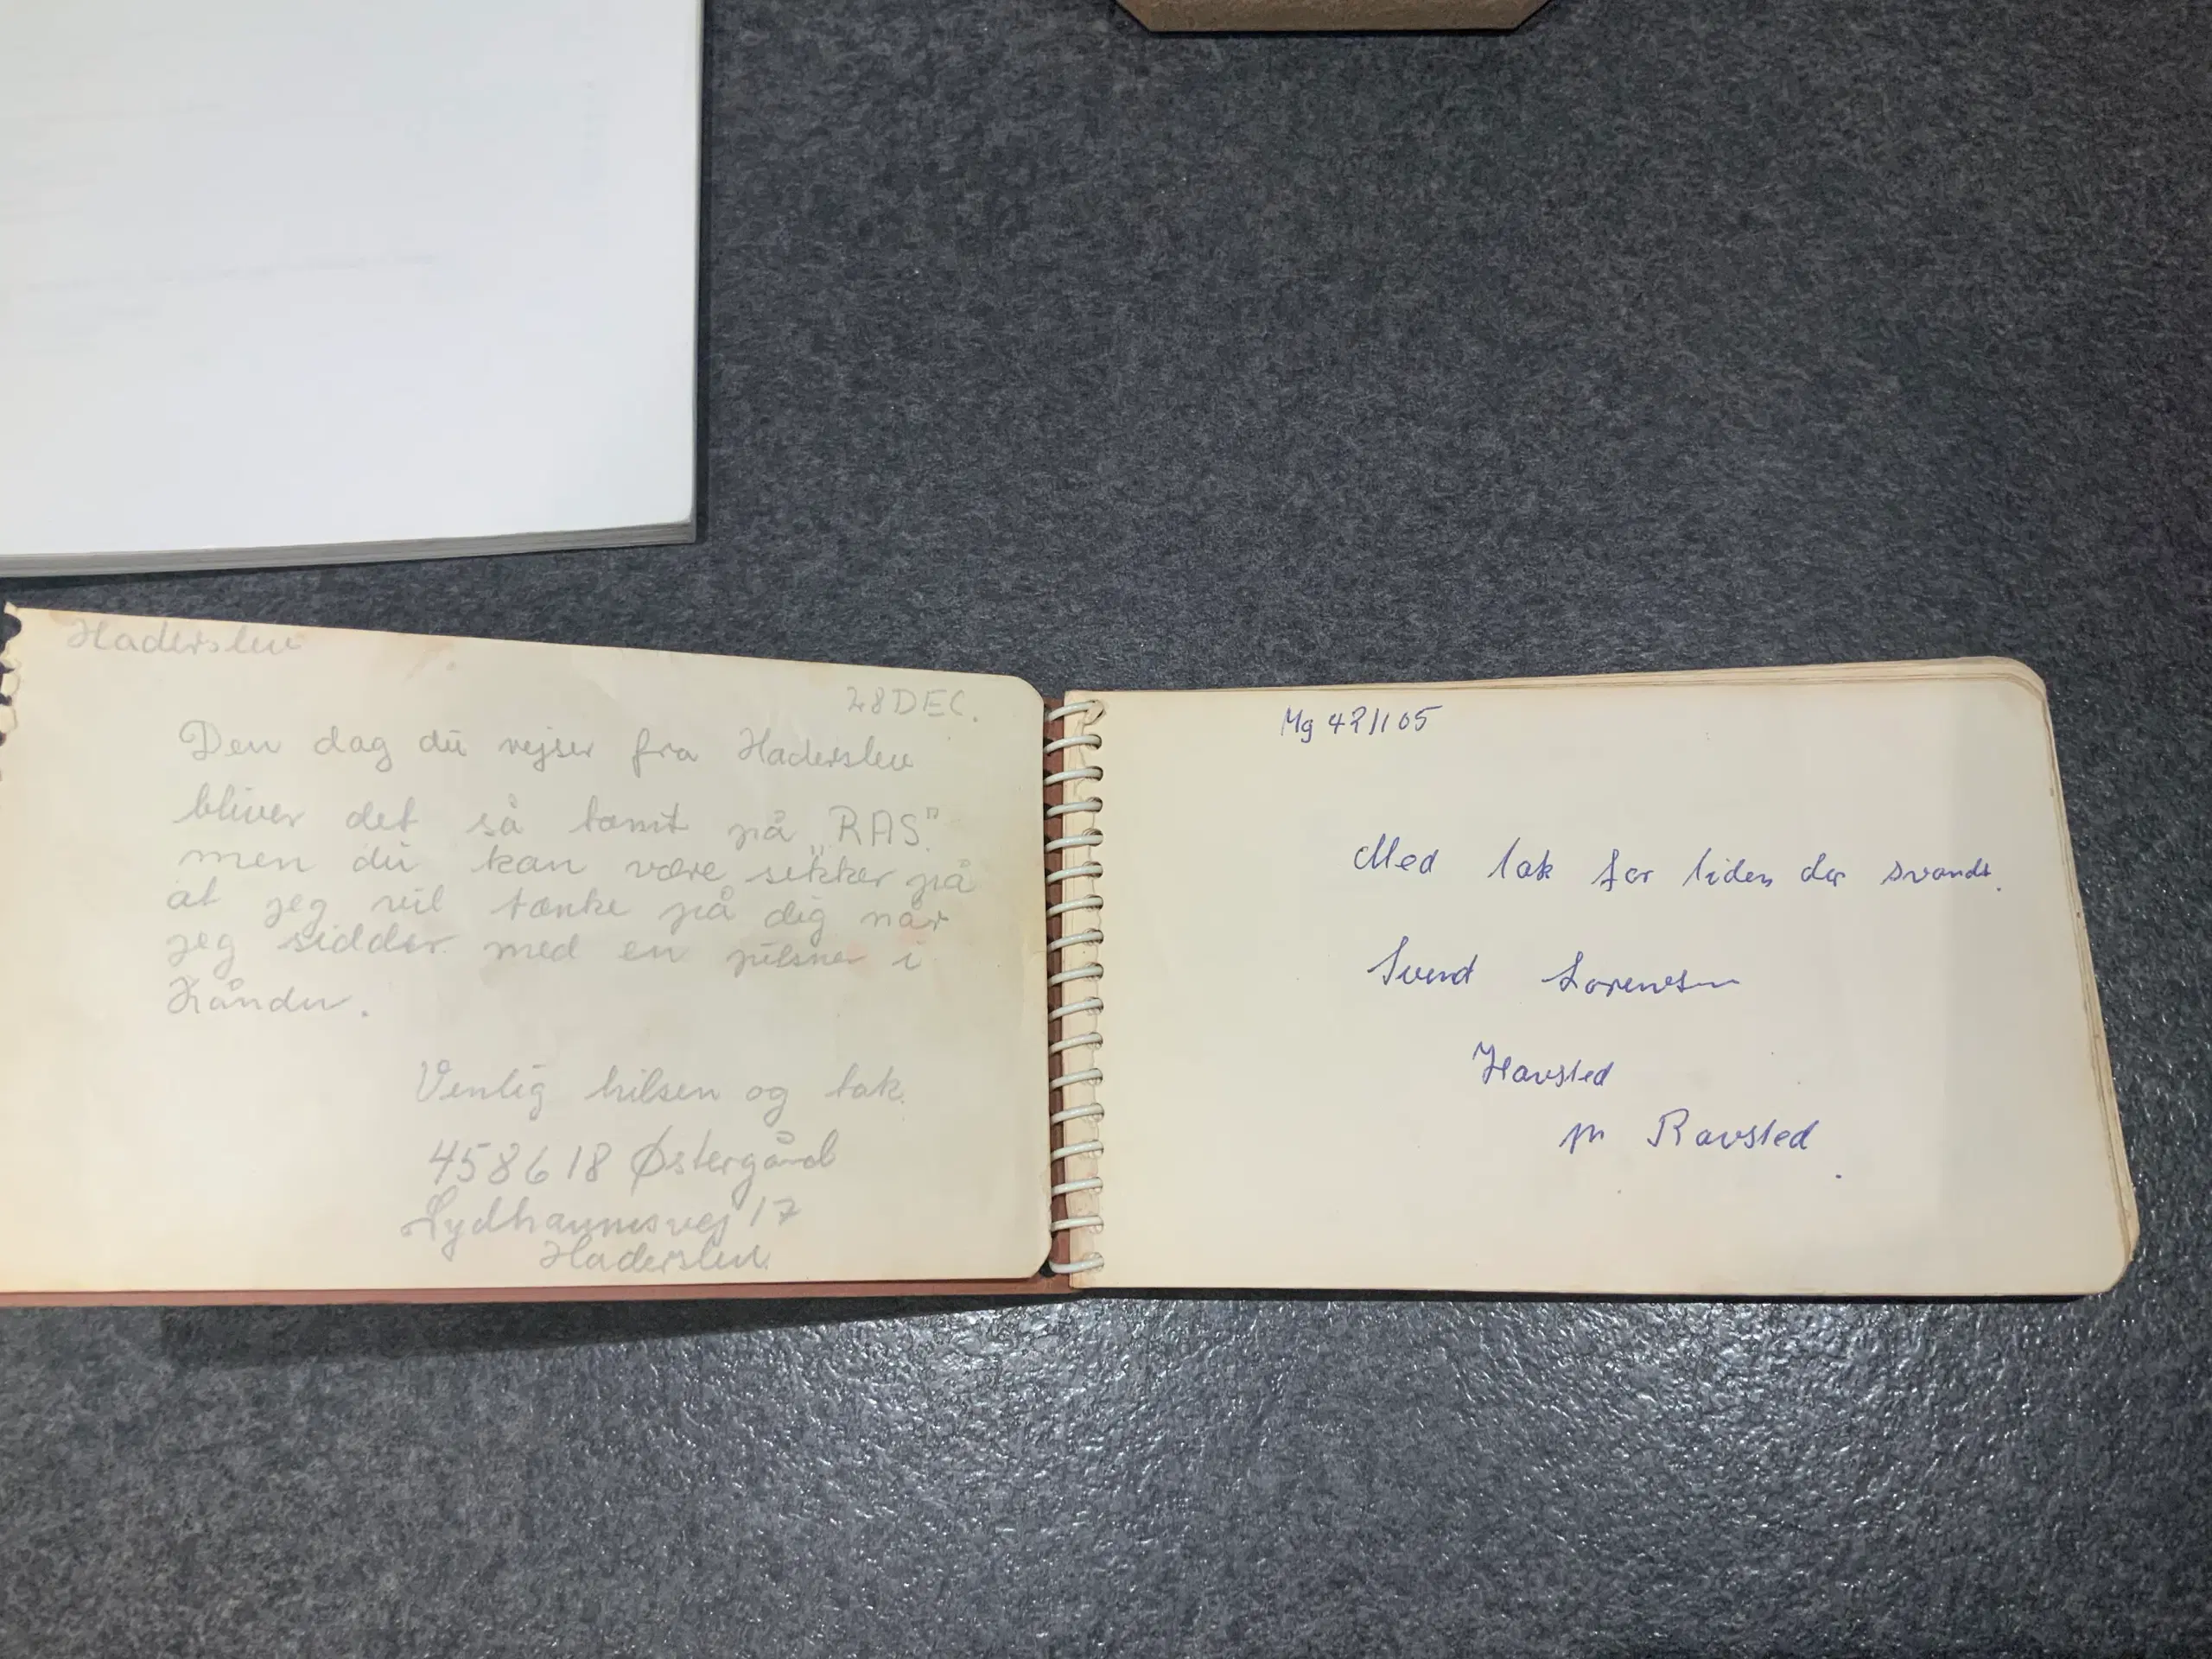 Haderslev
28 DEC.
Den dag du rejser fra Haderslev
bliver det så tomt på „RAS".
men du kan være sikker på
at jeg vil tænke på dig når
jeg sidder med en pilsner i
Hånden.
Venlig hilsen og tak.
458618 Østergård
Sydhavnsvej 17
Haderslev.
Mg 42/105
Med tak for tiden der svandt.
Svend Lorensen
Havsted
pr Ravsted.